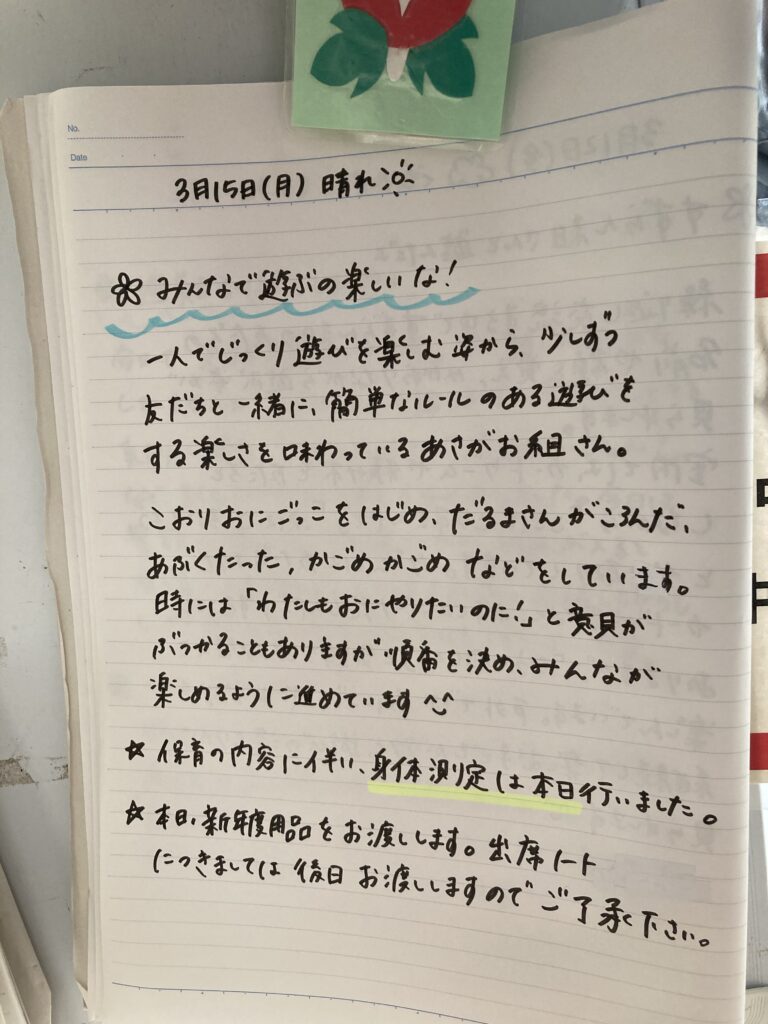 No.
Date
3月15日(月) 晴れ
みんなで遊ぶの楽しいな!
一人でじっくり遊びを楽しむ姿から、少しずつ
友だちと一緒に、簡単なルールのある遊びを
する楽しさを味わっているあさがお組さん。
こおりおにごっこをはじめ、だるまさんがころんだ、
あぶくたった, かごめかごめなどをしています。
時には「わたしもおにやりたいのに!」と意見が
ぶつかることもありますが順番を決め、みんなが
楽しめるように進めています^^
☆ 保育の内容に伴い、身体測定は本日行いました。
☆ 本日、新年度用品をお渡しします。出席ノート
につきましては後日お渡ししますのでご了承下さい。